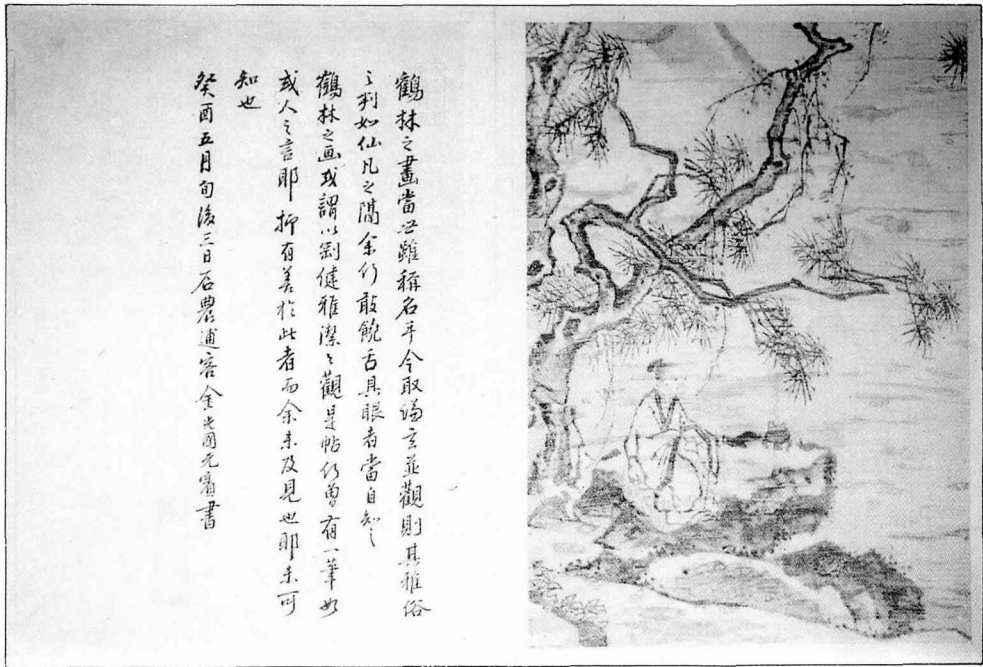 鶴林之畫當世雖稱名手今取謙玄並觀則其雅俗
之判如仙凡之隔余何敢饒舌具眼者當自知之
鶴林之画或謂以剛健雅潔〻觀是帖何曾有一筆如
或人之言耶抑有善於此者而余未及見也耶未可
知也
癸酉五月旬後三日石農逋客金光國元賓書